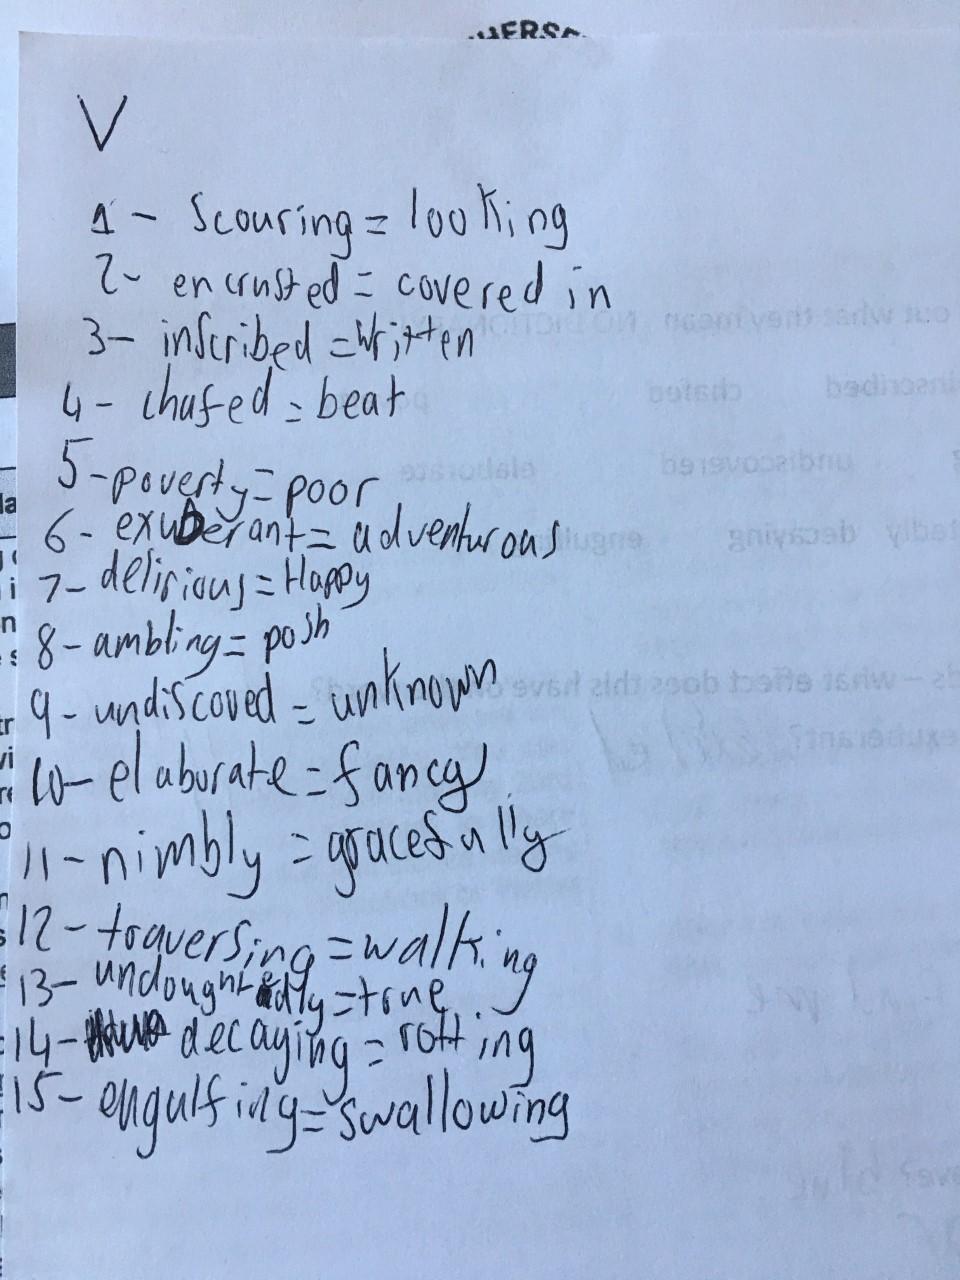 V
1 - Scouring = looking
2 - encrusted = covered in
3 - inscribed = written
4 - chafed = beat
5 - poverty = poor
6 - exuberant = adventurous
7 - delirious = Happy
8 - ambling = posh
9 - undiscoved = unknown
10 - elaborate = fancy
11 - nimbly = gracefully
12 - traversing = walking
13 - undoughtedly = true
14 - decaying = rotting
15 - engulfing = swallowing